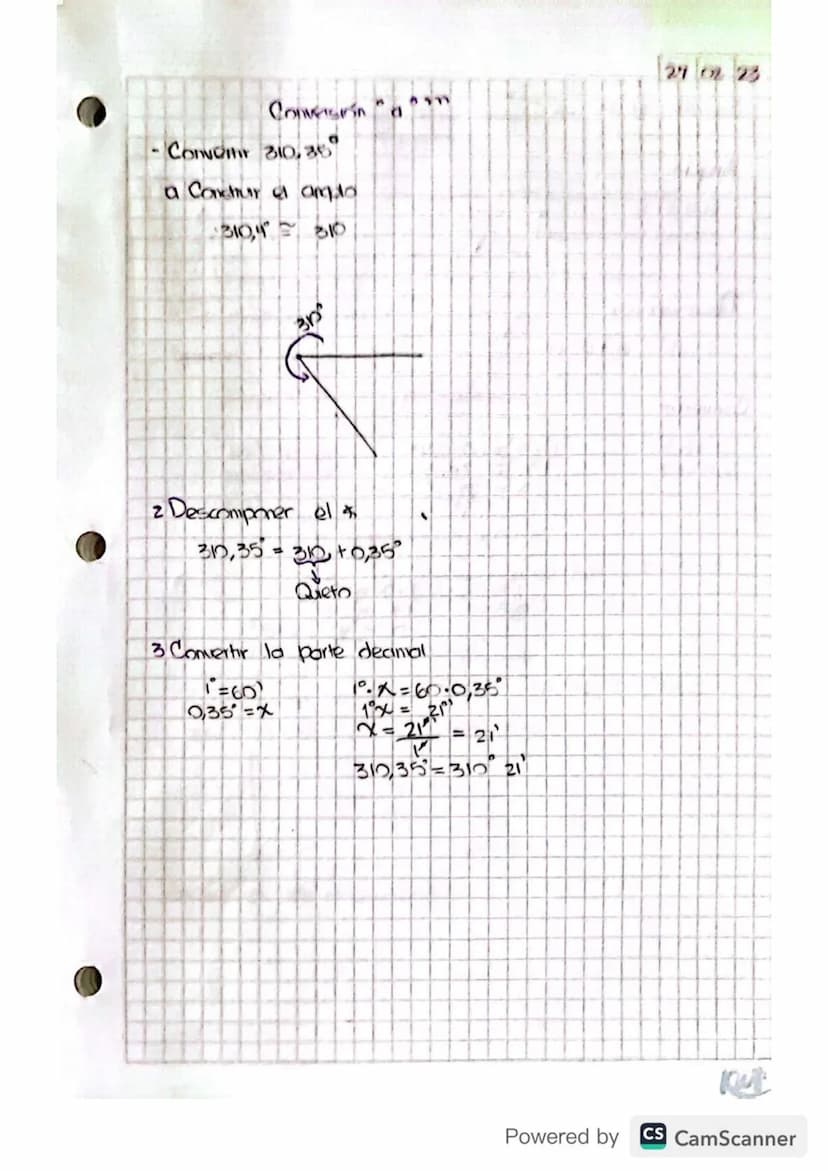 27 02 23
Conversión "a° ' "
- Convertir 310,35°
a Construir el angulo
310,4° ≅ 310
310°
2 Descomponer el ∢
310,35° = 310 + 0,35°
Quieto
3 Convertir la parte decimal
1° = 60' 1°·x = 60·0,35°
0,35° = x 1°x = 21°'
x = 21°' / 1° = 21'
310,35° = 310° 21'
Powered by CS CamScanner